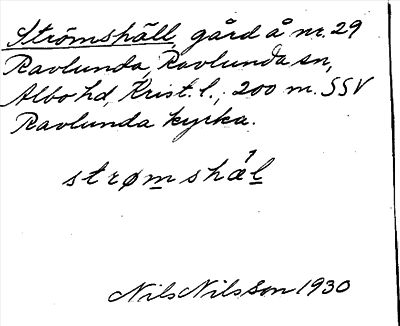 Strömshäll, gård å nr. 29
Ravlunda, Ravlunda sn,
Albo hd, Krist. l.; 200 m. SSV
Ravlunda kyrka.
strømshæ̍l
Nils Nilsson 1930